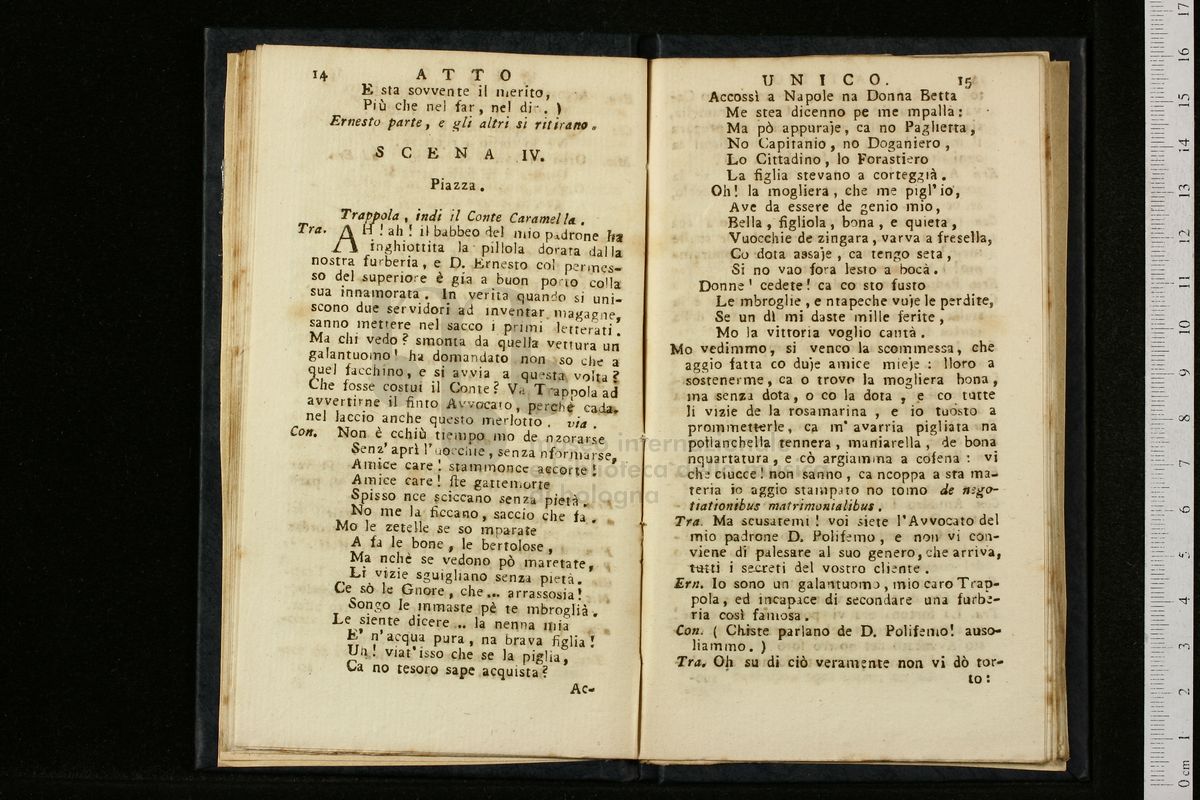 14 ATTO
E sta sovvente il merito,
Più che nel far, nel dir. )
Ernesto parte, e gli altri si ritirano.
SCENA IV.
Piazza.
Trappola, indi il Conte Caramella.
Tra. AH! ah! il babbeo del mio padrone ha
inghiottita la pillola dorata dalla
nostra furberia, e D. Ernesto col permes-
so del superiore è gia a buon porto colla
sua innamorata. In verità quando si uni-
scono due servidori ad inventar magagne,
sanno mettere nel sacco i primi letterati.
Ma chi vedo? smonta da quella vettura un
galantuomo! ha domandato non so che a
quel facchino, e si avvia a questa volta?
Che fosse costui il Conte? Va Trappola ad
avvertirne il finto Avvocato, perchè cada
nel laccio anche questo merlotto. via.
Con. Non è cchiù tiempo mo de nzorarse
Senz' aprì l'uocchie, senza nformarse,
Amice care! stammonce accorte!
Amice care! ste gattemorte
Spisso nce sciccano senza pietà.
No me la ficcano, saccio che fa.
Mo le zetelle se so mparate
A fa le bone, le bertolose,
Ma nchè se vedono pò maretate,
Li vizie sguigliano senza pietà.
Ce sò le Gnore, che... arrassosia!
Songo le mmaste pè te mbroglià.
Le siente dicere .. la nenna mia
E' n'acqua pura, na brava figlia!
Uh! viat'isso che se la piglia,
Ca no tesoro sape acquista?
Ac-
UNICO. 15
Accossì a Napole na Donna Betta
Me stea dicenno pe me mpalla:
Ma pò appuraje, ca no Paglietta,
No Capitanio, no Doganiero,
Lo Cittadino, lo Forastiero
La figlia stevano a corteggià.
Oh! la mogliera, che me pigl'io,
Ave da essere de genio mio,
Bella, figliola, bona, e quieta,
Vuocchie de zingara, varva a fresella,
Co dota assaje, ca tengo seta,
Si no vao fora lesto a bocà.
Donne! cedete! ca co sto fusto
Le mbroglie, e ntapeche vuje le perdite,
Se un dì mi daste mille ferite,
Mo la vittoria voglio cantà.
Mo vedimmo, si venco la scommessa, che
aggio fatta co duje amice mieje: lloro a
sostenerme, ca o trovo la mogliera bona,
ma senza dota, o co la dota, e co tutte
li vizie de la rosamarina, e io tuosto a
prommetterle, ca m' avarria pigliata na
pollanchella tennera, maniarella, de bona
nquartatura, e cò argiamma a cofena: vi
che ciucce! non sanno, ca ncoppa a sta ma-
teria io aggio stampato no tomo de nego-
tiationibus matrimonialibus.
Tra. Ma scusatemi! voi siete l'Avvocato del
mio padrone D. Polifemo, e non vi con-
viene di palesare al suo genero, che arriva,
tutti i secreti del vostro cliente.
Ern. Io sono un galantuomo, mio caro Trap-
pola, ed incapace di secondare una furbe-
ria così famosa.
Con. ( Chiste parlano de D. Polifemo! auso-
liammo. )
Tra. Oh su di ciò veramente non vi dò tor-
to:
museo internazionale
e biblioteca della musica
di bologna
0 cm 1 2 3 4 5 6 7 8 9 10 11 12 13 14 15 16 17